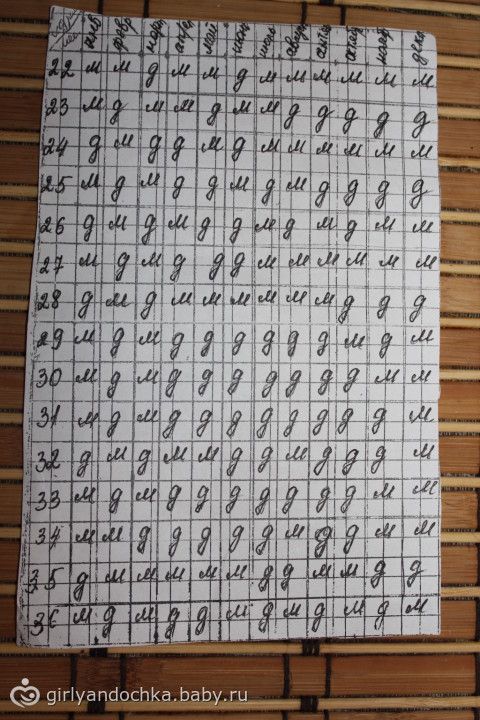 янв февр март апрел май июнь июль авгус сентя октяб нояб дека
22 м м д м м д м м м м м м
23 м д м м д м м д д д д д
24 д м д д м д м м м м м м
25 м д м д д м д м д д д д
26 д м д м д д м д м д м м
27 м д м д д д м м м м м м
28 д м д м м м м м м д д д
29 м д м д д д д д д м д м
30 м д м д д д д д д д м м
31 м д м д д д д д д д д м
32 д м д м м д д м д д д м
33 м д м д д д д д д д м м
34 м м д д д д д м д д м м
35 д м м м м м д д м м д д
36 м д м д д м д м д м д м
girlyandochka.baby.ru